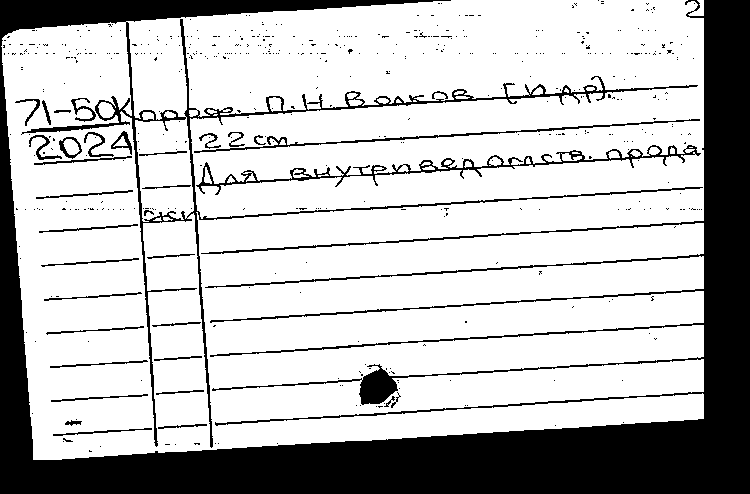 2
71-50 Караф. П.Н. Волков [и др].
2024 22 см.
Для внутриведомств. прода-
жи.